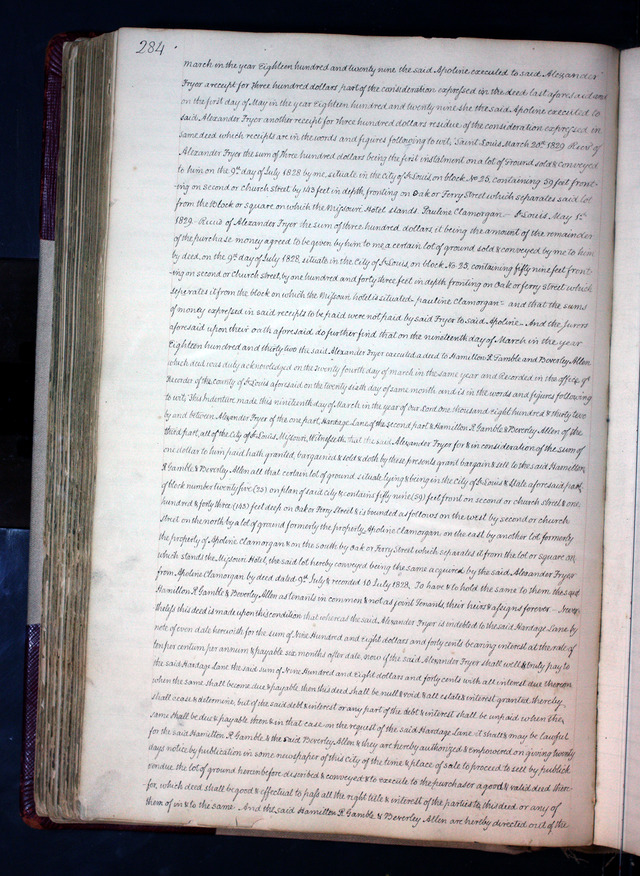 284
march in the year Eighteen hundred and twenty nine the said Apoline executed to said Alexander
Fryer a receipt for Three hundred dollars part of the consideration expressed in the deed last aforesaid and
on the first day of May in the year Eighteen hundred and twenty nine she the said Apoline executed to
said Alexander Fryer another receipt for Three hundred dollars residue of the consideration expressed in
same deed which receipts are in the words and figures following to wit, Saint Louis March 20th 1829 Recd of
Alexander Fryer the sum of Three hundred dollars being the first instalment on a lot of Ground sold & conveyed
to him on the 9th day of July 1828 by me, situate in the City of St Louis on block No 25, containing 59 feet front-
-ing on second or church street by 143 feet in depth fronting on Oak or Ferry Street which separates said lot
from the block or square on which the Missouri Hotel stands Pauline Clamorgan — St Louis, May 1st
1829. Recd of Alexander Fryer the sum of three hundred dollars, it being the amount of the remainder
of the purchase money agreed to be given by him to me a certain lot of ground sold & conveyed by me to him
by deed, on the 9th day of July 1828, situate in the City of St Louis on block No 25, containing fifty nine feet front-
-ing on second or church street, by one hundred and forty three feet in depth fronting on Oak or ferry street which
seperates it from the block on which the Missouri hotel is situated. pauline Clamorgan and that the sums
of money expressed in said receipts to be paid were not paid by said Fryer to said Apoline — And the jurors
aforesaid upon their oath aforesaid do further find that on the nineteenth day of March in the year
Eighteen hundred and thirty two the said Alexander Fryer executed a deed to Hamilton R Gamble and Beverley Allen
which deed was duly acknowledged on the twenty fourth day of march in the same year and Recorded in the office of
Recorder of the county of St Louis aforesaid on the twenty sixth day of same month and is in the words and figures following
to wit, This Indenture made this nineteenth day of March in the year of our Lord one thousand eight hundred & thirty two
by and between Alexander Fryer of the one part, Hardage Lane of the second part & Hamilton R. Gamble & Beverley Allen of the
third part, all of the City of St Louis, Missouri, Witnesseth that the said Alexander Fryer for & in consideration of the sum of
one dollar to him paid hath granted, bargained & sold & doth by these presents grant bargain & sell to the said Hamilton
R Gamble & Beverley Allen all that certain lot of ground situate lying & being in the City of St Louis & State aforesaid part
of block number twenty five (25) on plan of said city & contains fifty nine (59) feet front on second or church street & one
hundred & forty three (143) feet deep on Oak or Ferry Street & is bounded as follows on the west by second or church
street on the north by a lot of ground formerly the property Apoline Clamorgan on the east by another lot formerly
the property of Apoline Clamorgan & on the south by Oak or Ferry Street which separates it from the lot or square on
which stands the Missouri Hotel, the said lot hereby conveyed being the same acquired by the said Alexander Fryer
from Apoline Clamorgan by deed dated 9th July & recorded 10 July 1828. To have & to hold the same to them, the said
Hamilton R. Gamble & Beverley Allen as tenants in common & not as joint Tenants, their heirs & assigns forever — Never-
theless this deed is made upon this condition that whereas the said Alexander Fryer is indebted to the said Hardage Lane by
note of even date herewith for the sum of Nine Hundred and eight dollars and forty cents bearing interest at the rate of
ten per centum per annum & payable six months after date, now if the said Alexander Fryer shall well & truly pay to
the said Hardage Lane the said sum of Nine Hundred and Eight dollars and forty cents with all interest due thereon
when the same shall become due & payable then this deed shall be null & void & all estate & interest granted thereby
shall cease & determine, but if the said debt & interest or any part of the debt & interest shall be unpaid when the
same shall be due & payable then & in that case on the request of the said Hardage Lane it shall & may be lawful
for the said Hamilton R Gamble & the said Beverley Allen & they are hereby authorized & empowered on giving twenty
days notice by publication in some newspaper of this city of the time & place of sale to proceed to sell by publick
vendue the lot of ground hereinbefore described & conveyed & to execute to the purchaser a good & valid deed there-
-for, which deed shall be good & effectual to pass all the right title & interest of the parties to this deed or any of
them of in & to the same And the said Hamilton R. Gamble & Beverley Allen are hereby directed out of the